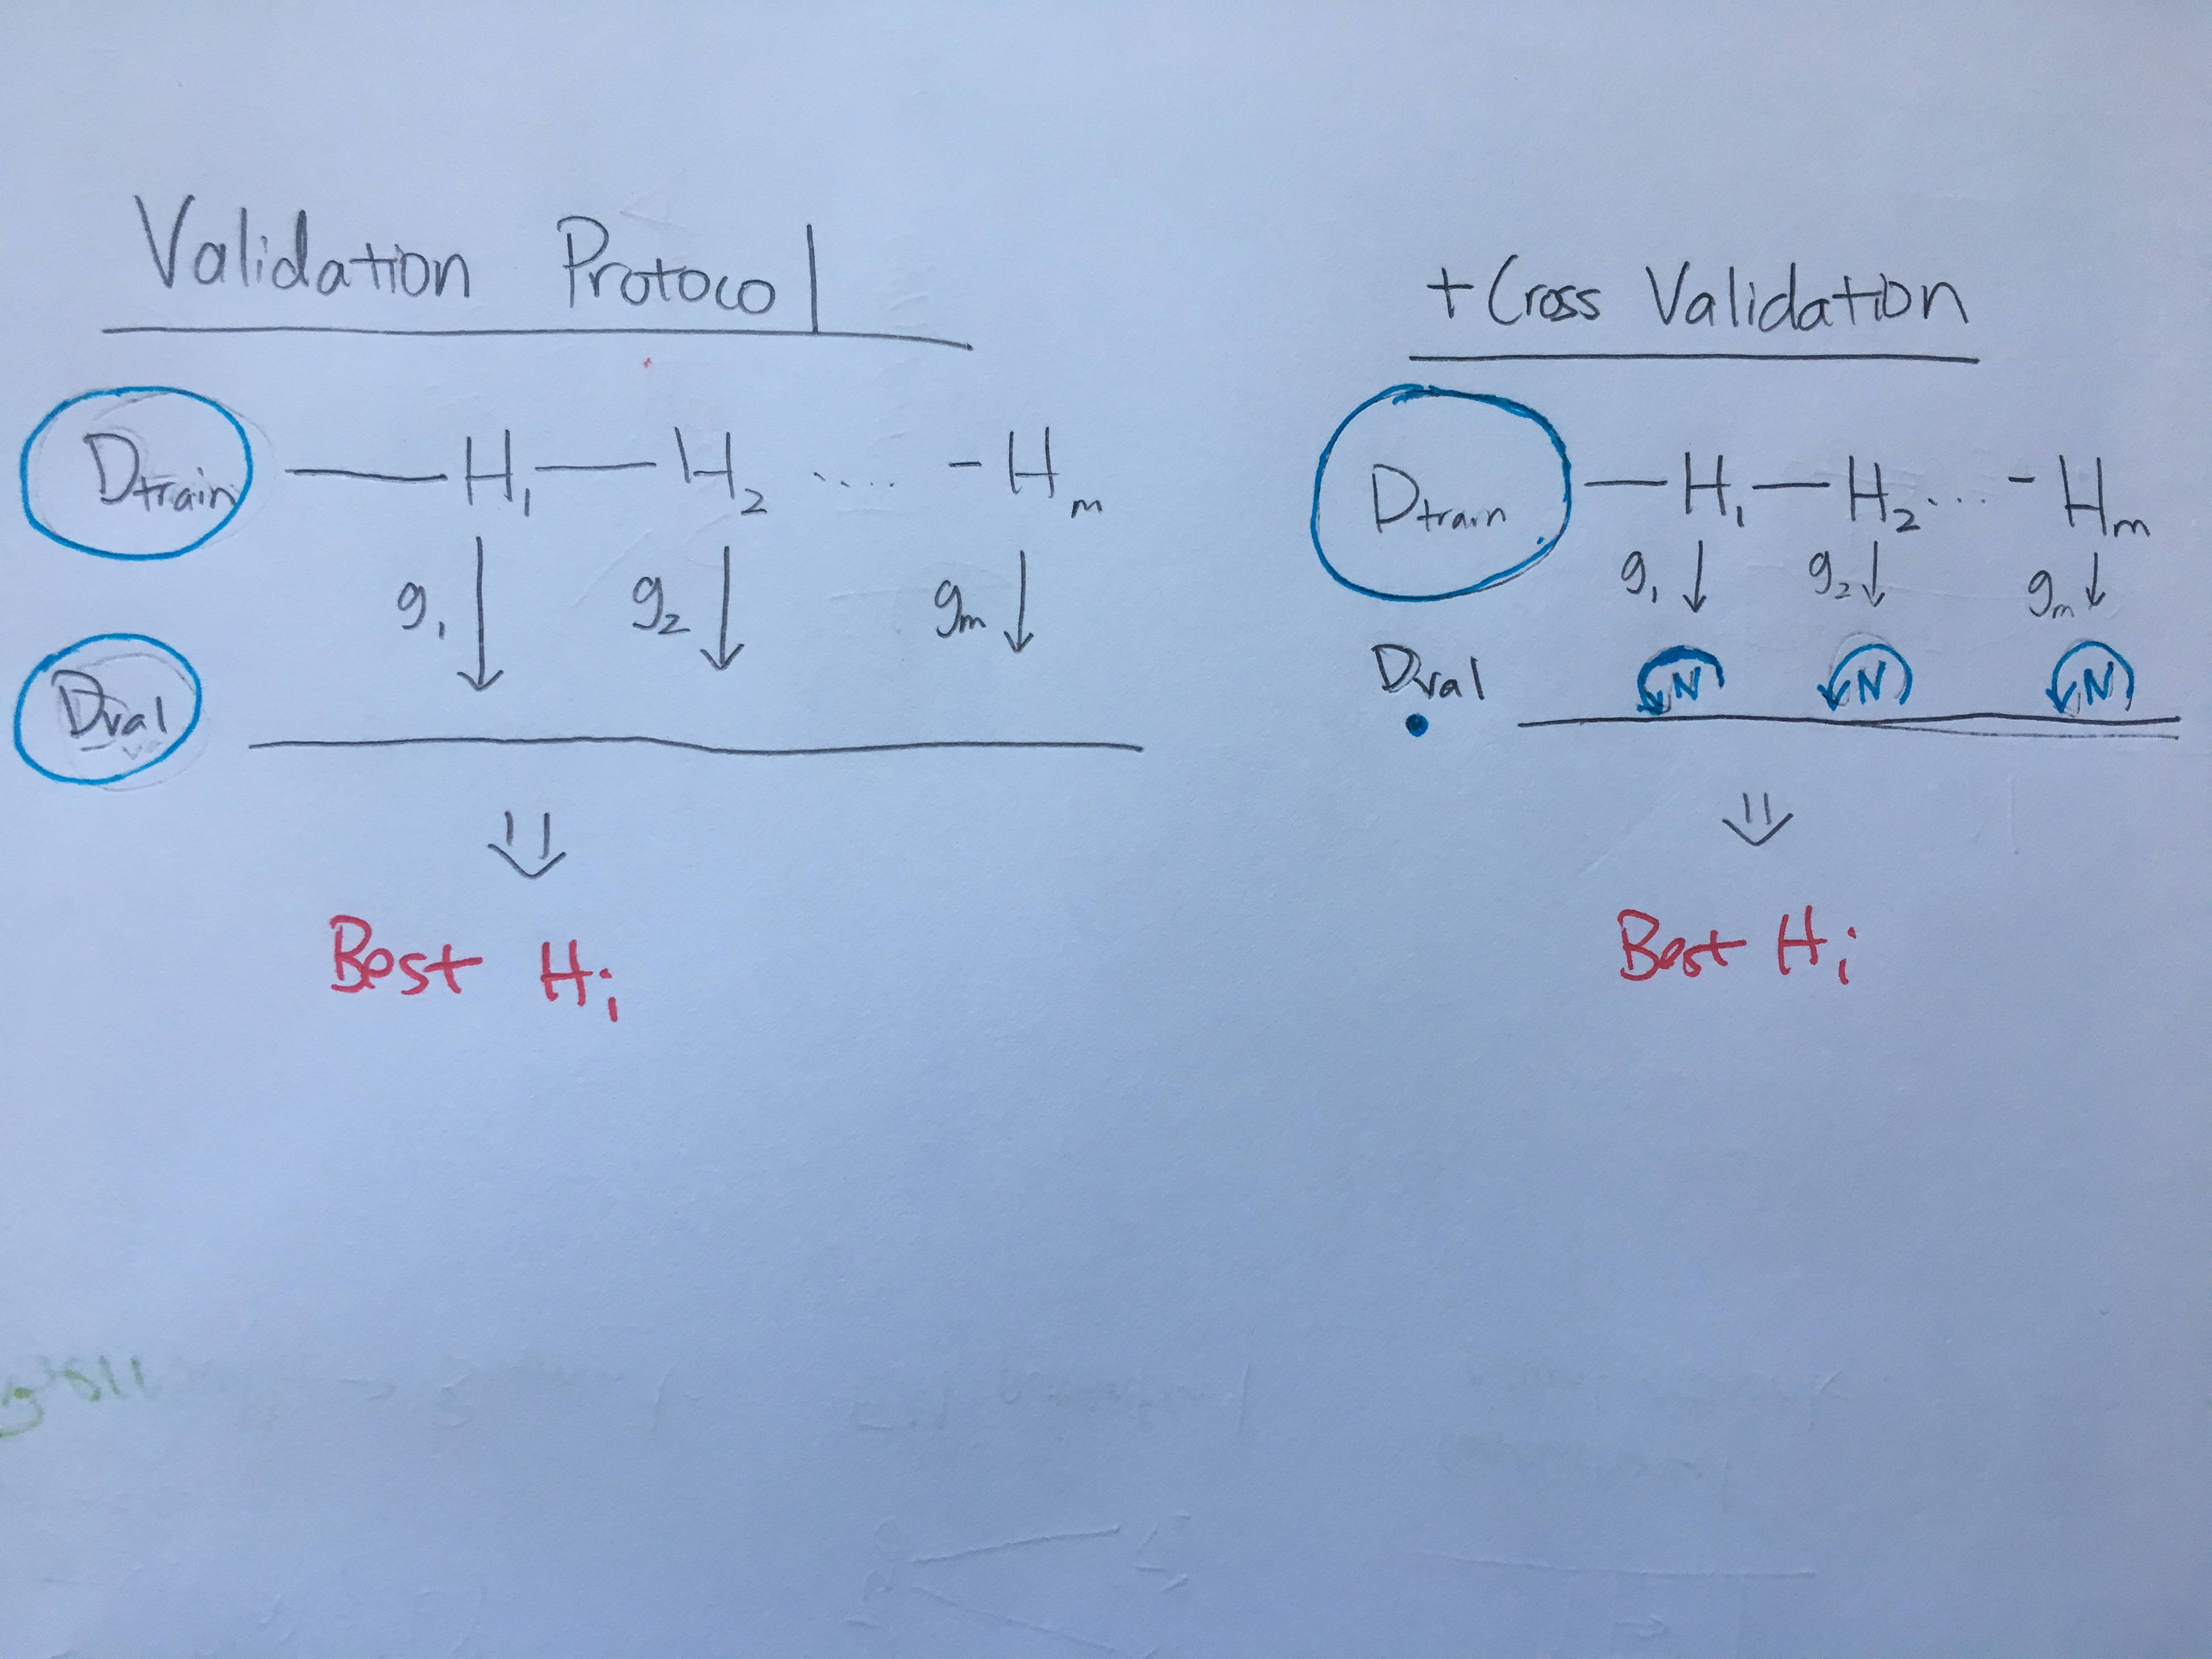 Validation Protocol
Dtrain — H1 — H2 .... - Hm
g1 ↓ g2 ↓ gm ↓
Dval
⇓
Best Hi
+ Cross Validation
Dtrain — H1 — H2 .... - Hm
g1 ↓ g2 ↓ gm ↓
Dval
N N N
⇓
Best Hi